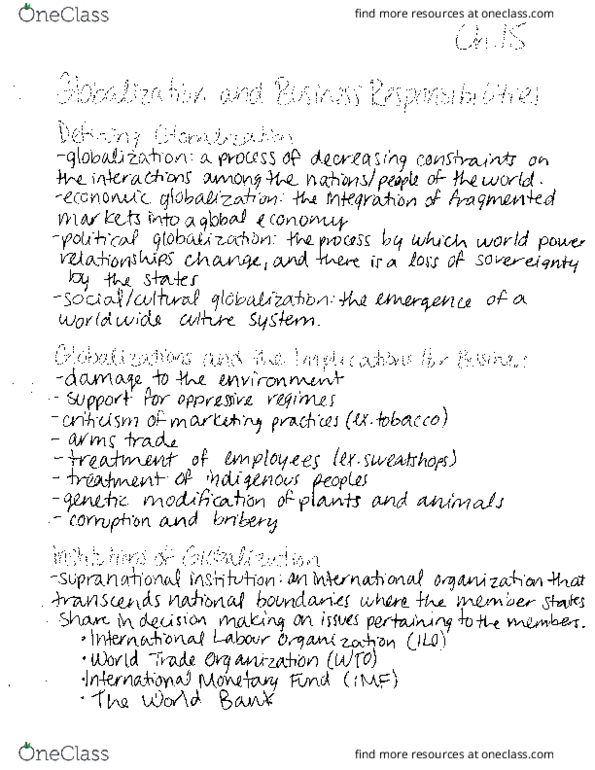 OneClass
find more resources at oneclass.com
Ch.15
Globalization and Business Responsibilities
Defining Globalization
-globalization: a process of decreasing constraints on
the interactions among the nations/people of the world.
-economic globalization: the integration of fragmented
markets into a global economy
-political globalization: the process by which world power
relationships change, and there is a loss of sovereignty
by the states
-social/cultural globalization: the emergence of a
worldwide culture system.
Globalizations and the Implications for Business
-damage to the environment
- support for oppressive regimes
-criticism of marketing practices (ex. tobacco)
- arms trade
- treatment of employees (ex. sweatshops)
- treatment of indigenous peoples
-genetic modification of plants and animals
- corruption and bribery
Institutions of Globalization
-supranational institution: an international organization that
transcends national boundaries where the member states
share in decision making on issues pertaining to the members.
• International Labour Organization (ILO)
• World Trade Organization (WTO)
• International Monetary Fund (IMF)
• The World Bank
OneClass
find more resources at oneclass.com